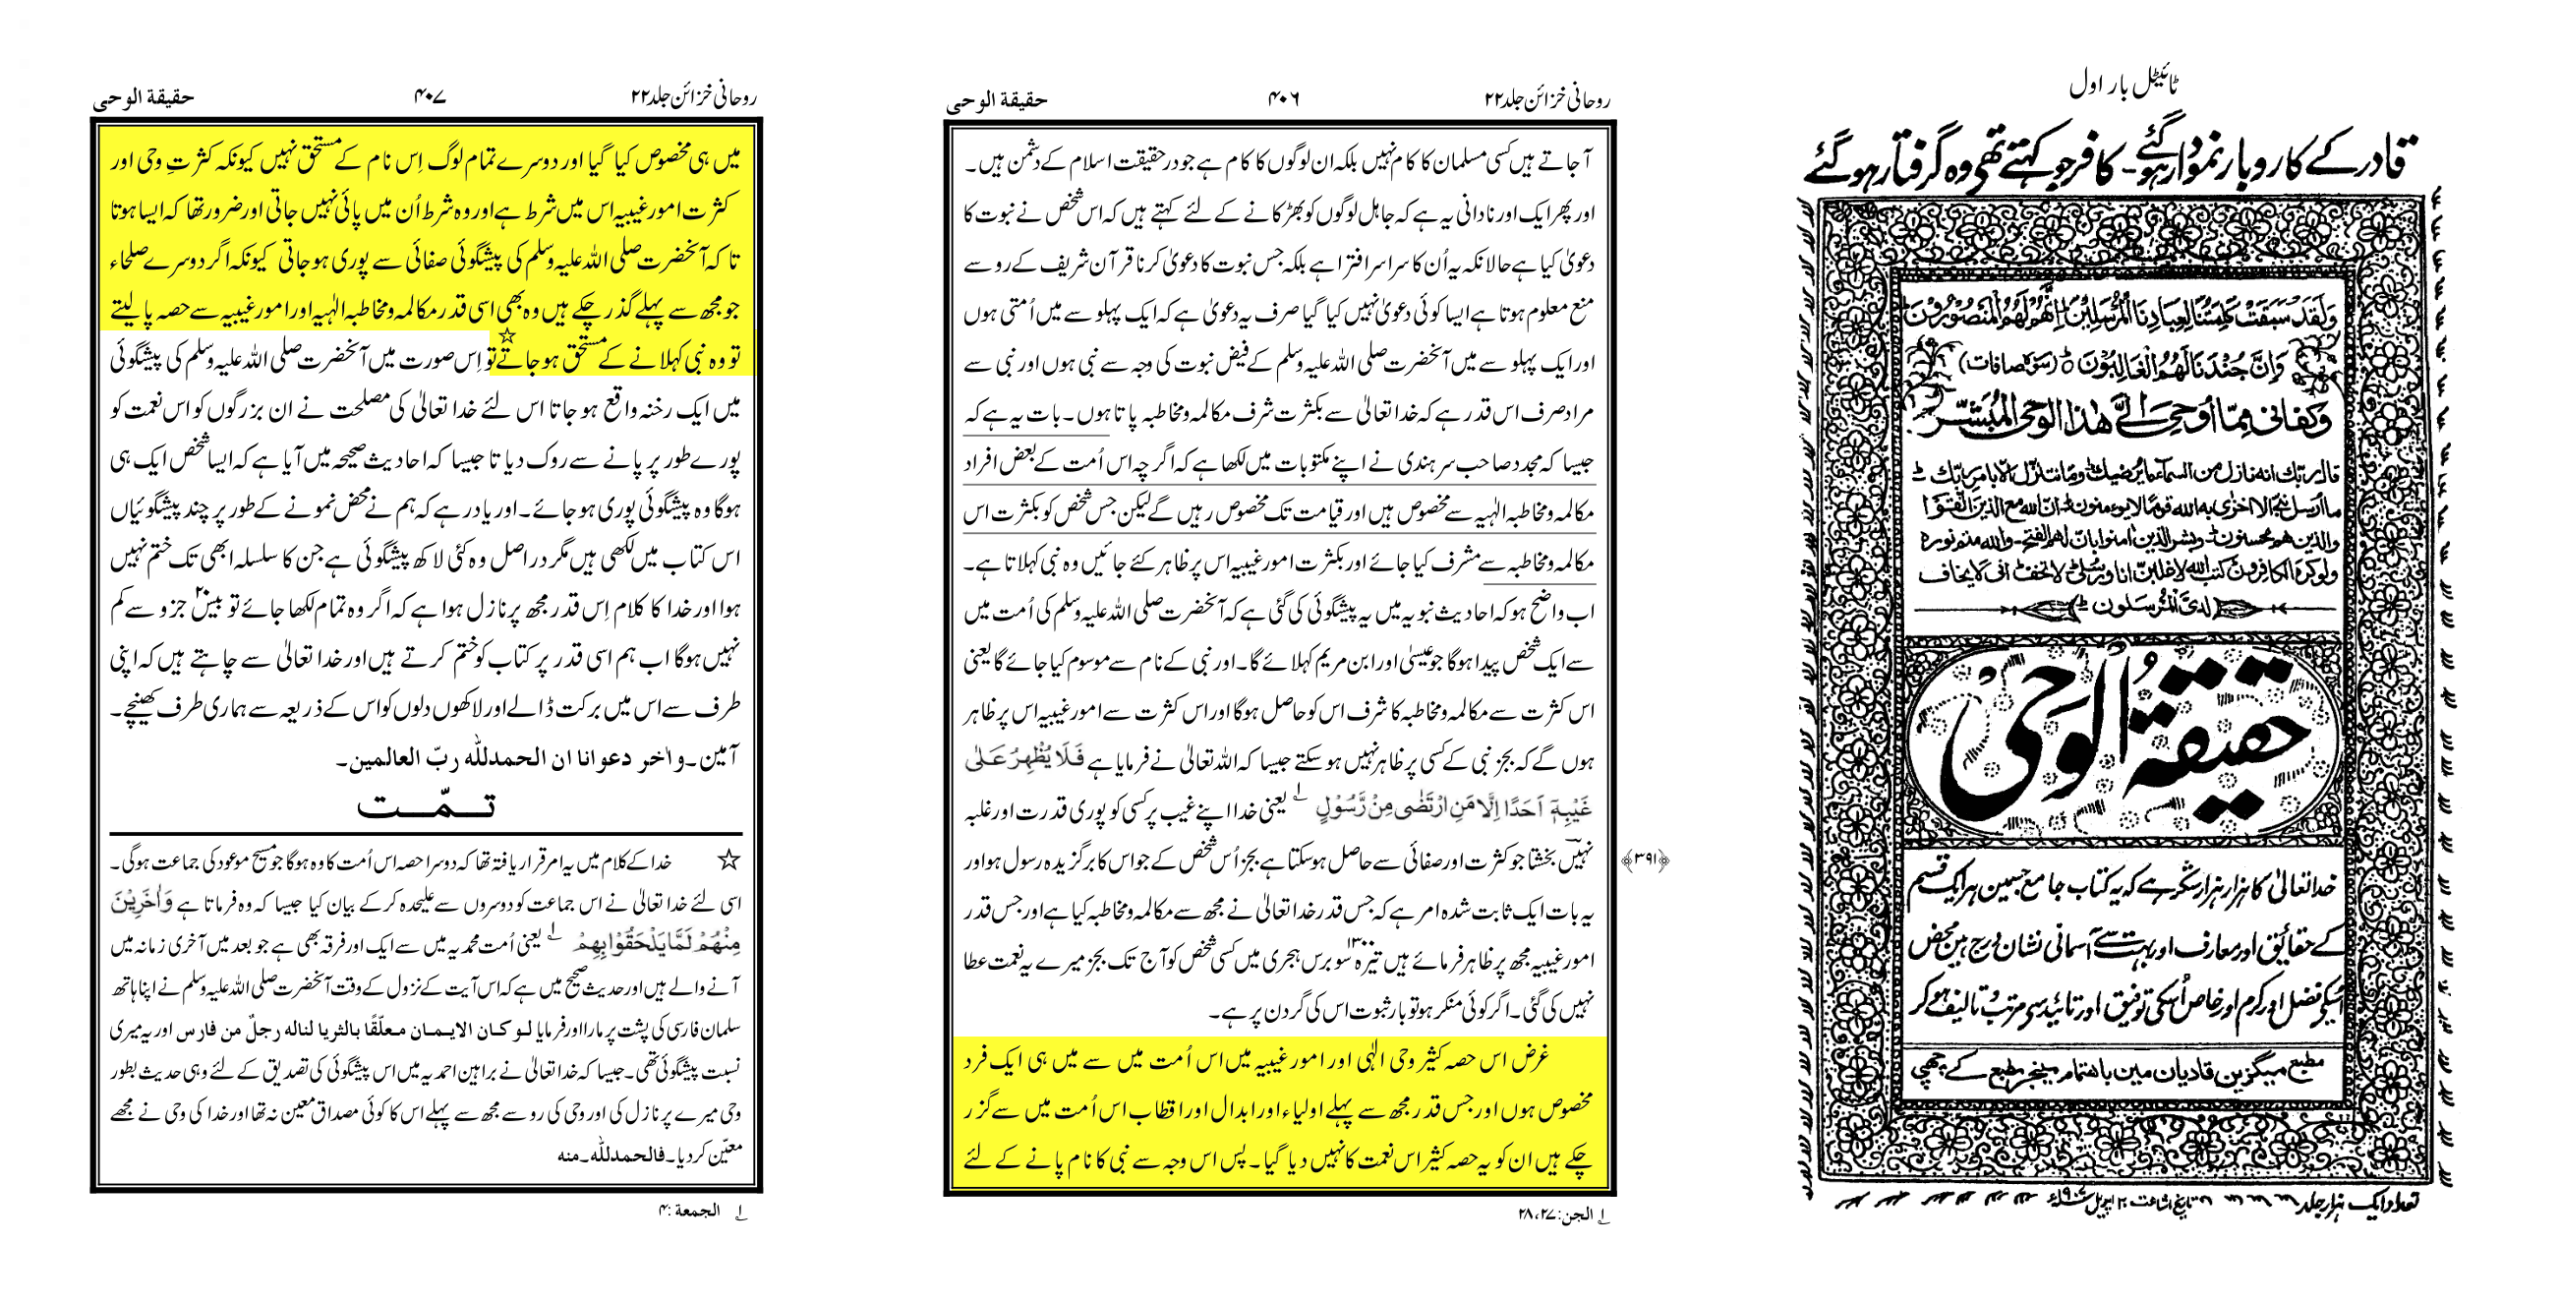 ٹائیٹل بار اول
قادر کے کاروبار نمودار ہو گئے ۔ کافر جو کہتے تھے وہ گرفتار ہو گئے
وَلَقَدْ سَبَقَتْ كَلِمَتُنَا لِعِبَادِنَا الْمُرْسَلِيْنَ اِنَّهُمْ لَهُمُ الْمَنْصُوْرُوْنَ
وَاِنَّ جُنْدَنَا لَهُمُ الْغَالِبُوْنَ (سورۃ صافات)
وكفانى مما اُوحِىَ اِلَىَّ هٰذا الوحى المُبشّر
قال ربك انه نازل من السماء ما يرضيك وما نتنزّل الا بامر ربّك
ما ارسل نبى الا اخزى به الله قومًا لا يومنون ان الله مع الذين اتقوا
والذين هم محسنون وبشر الذين امنوا بان لهم الفتح والله متم نوره
ولو كره الكافرون كتب الله لاغلبن انا ورسلى لا تخف انى لا يخاف
لدىّ المرسلون
حقیقۃ الوحی
خدا تعالیٰ کا ہزار ہزار شکر ہے کہ یہ کتاب جامع جسمیں ہر ایک قسم
کے حقائق اور معارف اور بہت سے آسمانی نشان درج ہیں محض
اُسکے فضل اور کرم اور خاص اُسکی توفیق اور تائید سے مرتب و تالیف ہو کر
مطبع میگزین قادیان میں باہتمام مینیجر مطبع کے چھپی
تعداد ایک ہزار جلد تاریخ اشاعت ۲۰ اپریل ۱۹۰۷ء
روحانی خزائن جلد ۲۲ ۴۰۶ حقیقۃ الوحی
آجاتے ہیں کسی مسلمان کا کام نہیں بلکہ ان لوگوں کا کام ہے جو درحقیقت اسلام کے دشمن ہیں۔
اور پھر ایک اور نادانی یہ ہے کہ جاہل لوگوں کو بھڑکانے کے لئے کہتے ہیں کہ اس شخص نے نبوت کا
دعویٰ کیا ہے حالانکہ یہ اُن کا سراسر افترا ہے بلکہ جس نبوت کا دعویٰ کرنا قرآن شریف کے رو سے
منع معلوم ہوتا ہے ایسا کوئی دعویٰ نہیں کیا گیا صرف یہ دعویٰ ہے کہ ایک پہلو سے میں اُمتی ہوں
اور ایک پہلو سے میں آنحضرت صلی اللہ علیہ وسلم کے فیض نبوت کی وجہ سے نبی ہوں اور نبی سے
مراد صرف اس قدر ہے کہ خدا تعالیٰ سے بکثرت شرف مکالمہ ومخاطبہ پاتا ہوں۔ بات یہ ہے کہ
جیسا کہ مجدد صاحب سرہندی نے اپنے مکتوبات میں لکھا ہے کہ اگرچہ اس اُمت کے بعض افراد
مکالمہ ومخاطبہ الٰہیہ سے مخصوص ہیں اور قیامت تک مخصوص رہیں گے لیکن جس شخص کو بکثرت اس
مکالمہ ومخاطبہ سے مشرف کیا جائے اور بکثرت امور غیبیہ اس پر ظاہر کئے جائیں وہ نبی کہلاتا ہے۔
اب واضح ہو کہ احادیث نبویہ میں یہ پیشگوئی کی گئی ہے کہ آنحضرت صلی اللہ علیہ وسلم کی اُمت میں
سے ایک شخص پیدا ہوگا جو عیسیٰ اور ابن مریم کہلائے گا۔ اور نبی کے نام سے موسوم کیا جائے گا یعنی
اس کثرت سے مکالمہ ومخاطبہ کا شرف اس کو حاصل ہوگا اور اس کثرت سے امور غیبیہ اس پر ظاہر
ہوں گے کہ بجز نبی کے کسی پر ظاہر نہیں ہو سکتے جیسا کہ اللہ تعالیٰ نے فرمایا ہے فَلَا يُظْهِرُ عَلٰى
غَيْبِهٖٓ اَحَدًا اِلَّا مَنِ ارْتَضٰى مِنْ رَّسُوْلٍ ؎۱ یعنی خدا اپنے غیب پر کسی کو پوری قدرت اور غلبہ
نہیں بخشتا جو کثرت اور صفائی سے حاصل ہو سکتا ہے بجز اُس شخص کے جو اس کا برگزیدہ رسول ہو اور
﴿۳۹۱﴾
یہ بات ایک ثابت شدہ امر ہے کہ جس قدر خدا تعالیٰ نے مجھ سے مکالمہ ومخاطبہ کیا ہے اور جس قدر
امور غیبیہ مجھ پر ظاہر فرمائے ہیں تیرہ سو ۱۳۰۰ برس ہجری میں کسی شخص کو آج تک بجز میرے یہ نعمت عطا
نہیں کی گئی۔ اگر کوئی منکر ہو تو بار ثبوت اس کی گردن پر ہے۔
غرض اس حصہ کثیر وحی الٰہی اور امور غیبیہ میں اس اُمت میں سے میں ہی ایک فرد
مخصوص ہوں اور جس قدر مجھ سے پہلے اولیاء اور ابدال اور اقطاب اس اُمت میں سے گزر
چکے ہیں ان کو یہ حصہ کثیر اس نعمت کا نہیں دیا گیا۔ پس اس وجہ سے نبی کا نام پانے کے لئے
؎۱ الجن: ۲۷، ۲۸
روحانی خزائن جلد ۲۲ ۴۰۷ حقیقۃ الوحی
میں ہی مخصوص کیا گیا اور دوسرے تمام لوگ اِس نام کے مستحق نہیں کیونکہ کثرتِ وحی اور
کثرت امور غیبیہ اس میں شرط ہے اور وہ شرط اُن میں پائی نہیں جاتی اور ضرور تھا کہ ایسا ہوتا
تا کہ آنحضرت صلی اللہ علیہ وسلم کی پیشگوئی صفائی سے پوری ہو جاتی کیونکہ اگر دوسرے صلحاء
جو مجھ سے پہلے گذر چکے ہیں وہ بھی اسی قدر مکالمہ ومخاطبہ الٰہیہ اور امور غیبیہ سے حصہ پا لیتے
تو وہ نبی کہلانے کے مستحق ہو جاتے☆ تو اِس صورت میں آنحضرت صلی اللہ علیہ وسلم کی پیشگوئی
میں ایک رخنہ واقع ہو جاتا اس لئے خدا تعالیٰ کی مصلحت نے ان بزرگوں کو اس نعمت کو
پورے طور پر پانے سے روک دیا تا جیسا کہ احادیث صحیحہ میں آیا ہے کہ ایسا شخص ایک ہی
ہوگا وہ پیشگوئی پوری ہو جائے۔ اور یاد رہے کہ ہم نے محض نمونے کے طور پر چند پیشگوئیاں
اس کتاب میں لکھی ہیں مگر دراصل وہ کئی لاکھ پیشگوئی ہے جن کا سلسلہ ابھی تک ختم نہیں
ہوا اور خدا کا کلام اِس قدر مجھ پر نازل ہوا ہے کہ اگر وہ تمام لکھا جائے تو بیس ۲۰ جزو سے کم
نہیں ہوگا اب ہم اسی قدر پر کتاب کو ختم کرتے ہیں اور خدا تعالیٰ سے چاہتے ہیں کہ اپنی
طرف سے اس میں برکت ڈالے اور لاکھوں دلوں کو اس کے ذریعہ سے ہماری طرف کھینچے۔
آمین۔ واٰخر دعوانا ان الحمدللّٰه ربّ العالمین۔
تمّت
☆ خدا کے کلام میں یہ امر قرار یافتہ تھا کہ دوسرا حصہ اس اُمت کا وہ ہوگا جو مسیح موعود کی جماعت ہوگی۔
اسی لئے خدا تعالیٰ نے اس جماعت کو دوسروں سے علیحدہ کر کے بیان کیا جیسا کہ وہ فرماتا ہے وَاٰخَرِيْنَ
مِنْهُمْ لَمَّا يَلْحَقُوْا بِهِمْ ؎۱ یعنی اُمت محمدیہ میں سے ایک اور فرقہ بھی ہے جو بعد میں آخری زمانہ میں
آنے والے ہیں اور حدیث صحیح میں ہے کہ اس آیت کے نزول کے وقت آنحضرت صلی اللہ علیہ وسلم نے اپنا ہاتھ
سلمان فارسی کی پشت پر مارا اور فرمایا لو کان الایمان معلّقًا بالثریا لناله رجلٌ من فارس اور یہ میری
نسبت پیشگوئی تھی۔ جیسا کہ خدا تعالیٰ نے براہین احمدیہ میں اس پیشگوئی کی تصدیق کے لئے وہی حدیث بطور
وحی میرے پر نازل کی اور وحی کی رو سے مجھ سے پہلے اس کا کوئی مصداق معین نہ تھا اور خدا کی وحی نے مجھے
معیّن کر دیا۔ فالحمدللّٰه۔ منه
؎۱ الجمعة: ۴